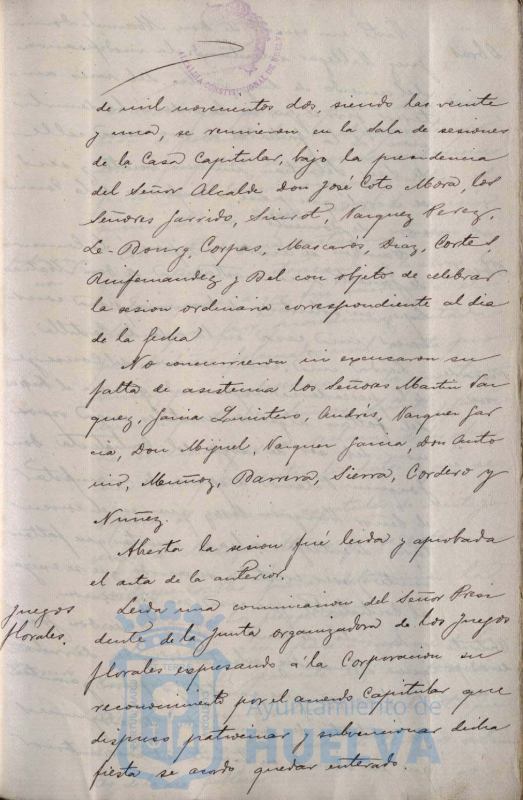 ALCALDIA CONSTITUCIONAL DE HUELVA
de mil novecientos dos, siendo las veinte
y una, se reunieron en la Sala de sesiones
de la Casa Capitular, bajo la presidencia
del Señor Alcalde Don José Coto Mora, los
Señores Garrido, Sinrot, Vazquez Perez,
Le-Bourg, Corpas, Mascarós, Diaz, Cortes,
Ruifernandez y Bel con objeto de celebrar
la sesion ordinaria correspondiente al dia
de la fecha
No concurrieron ni excusaron su
falta de asistencia los Señores Martin Vaz
quez, Garcia Quintero, Andrés, Vazquez Gar
cia, Don Miguel, Vazquez Garcia, Don Anto
nio, Muñoz, Barrera, Sierra, Cordero y
Nuñez.
Abierta la sesion fué leida y aprobada
el acta de la anterior.
Juegos
florales.
Leida una comunicacion del Señor Presi
dente de la Junta organizadora de los juegos
florales expresando á la Corporacion su
reconocimiento por el acuerdo Capitular que
dispuso patrocinar y subvencionar dicha
fiesta se acordó quedar enterado.
Ayuntamiento de
HUELVA